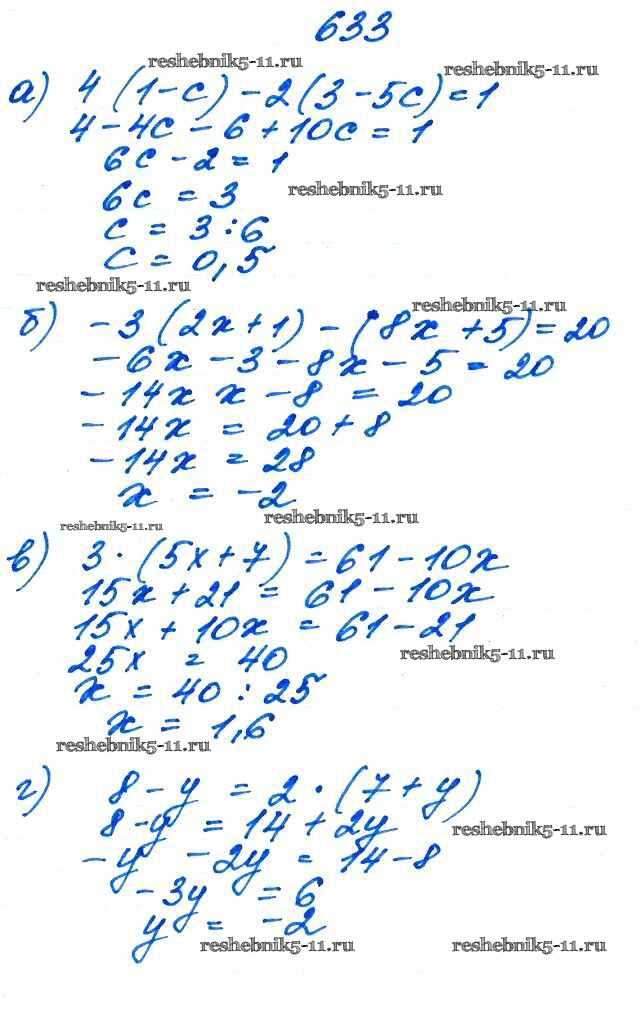 633
reshebnik5-11.ru
reshebnik5-11.ru
а) 4 (1-c) - 2 (3-5c) = 1
4 - 4c - 6 + 10c = 1
6c - 2 = 1
6c = 3
reshebnik5-11.ru
c = 3 : 6
c = 0,5
reshebnik5-11.ru
reshebnik5-11.ru
б) -3 (2x+1) - (8x+5) = 20
-6x - 3 - 8x - 5 = 20
-14x x - 8 = 20
-14x = 20 + 8
-14x = 28
x = -2
reshebnik5-11.ru
reshebnik5-11.ru
в) 3 · (5x+7) = 61 - 10x
15x + 21 = 61 - 10x
15x + 10x = 61 - 21
25x = 40
reshebnik5-11.ru
x = 40 : 25
x = 1,6
reshebnik5-11.ru
г) 8 - y = 2 · (7 + y)
8 - y = 14 + 2y
reshebnik5-11.ru
-y - 2y = 14 - 8
-3y = 6
y = -2
reshebnik5-11.ru
reshebnik5-11.ru